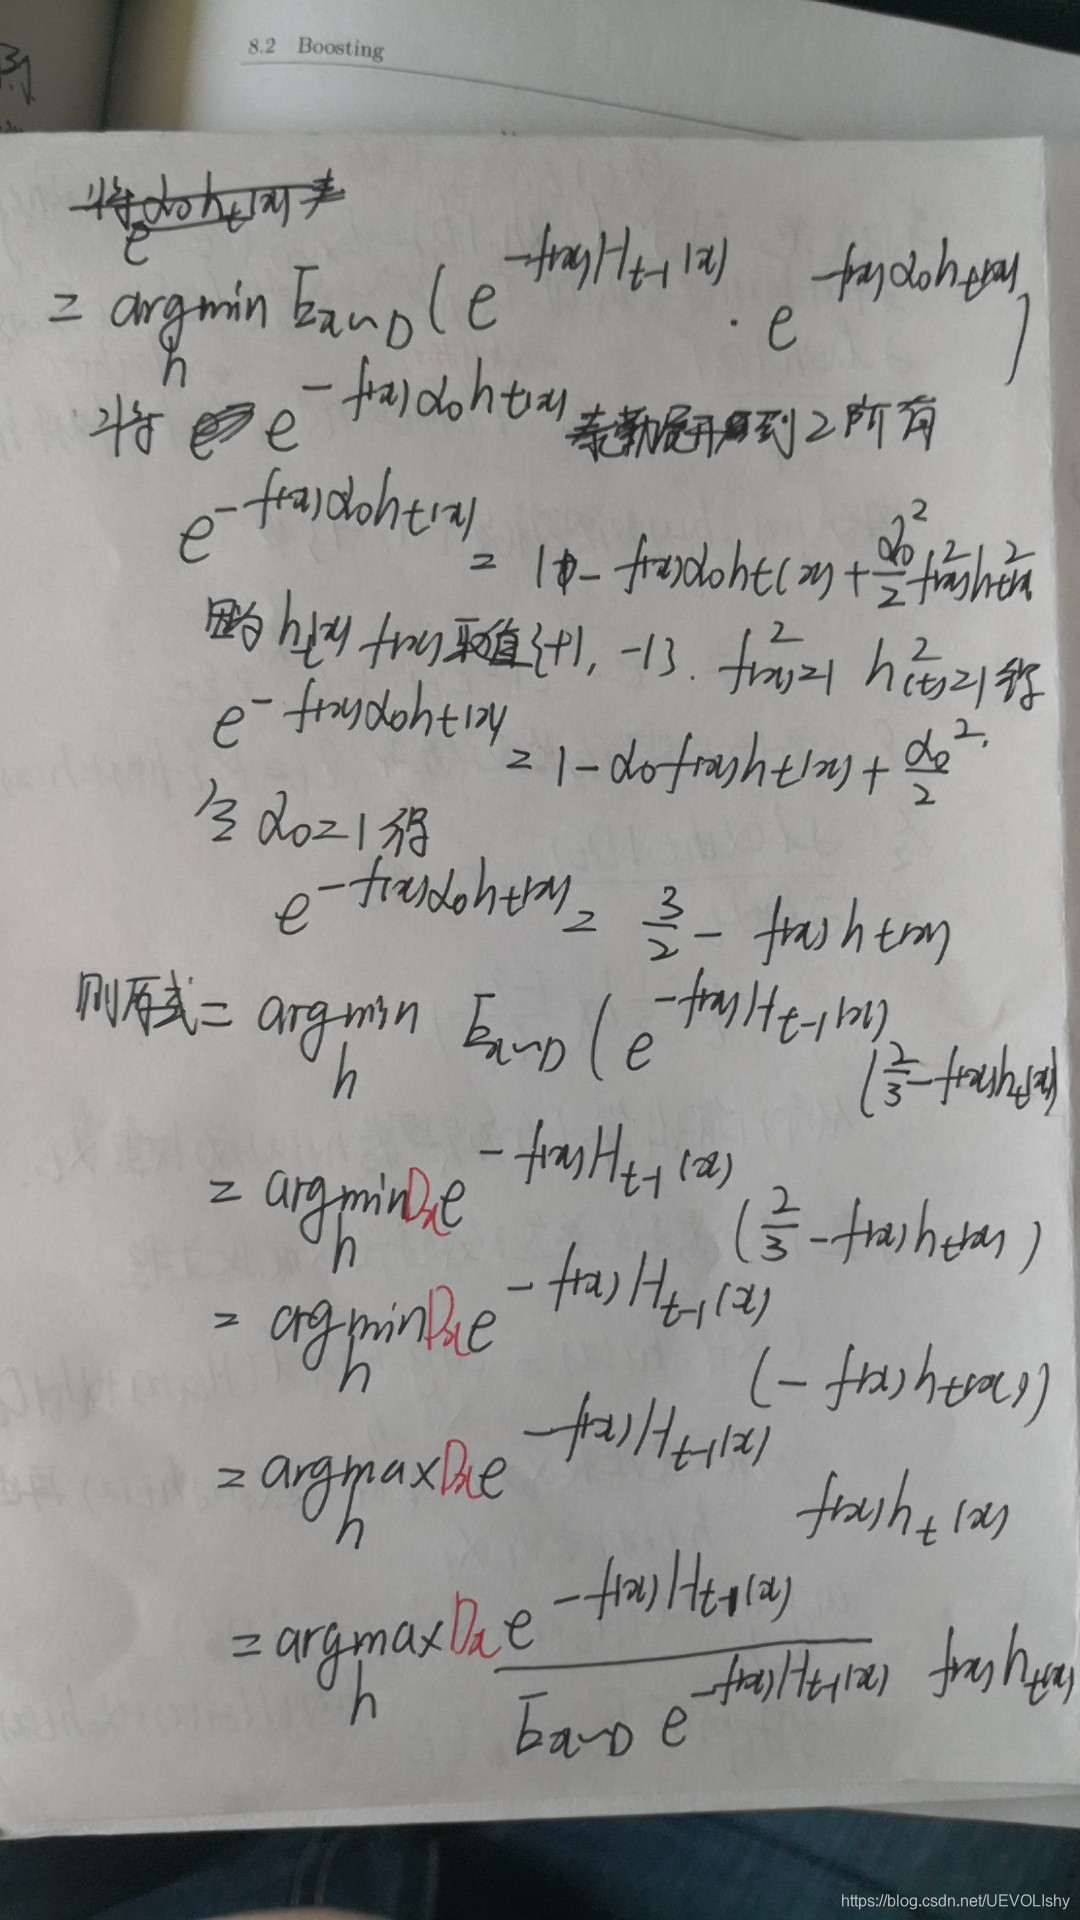 8.2 Boosting
将 e^{α₀h_t(x)}
= argmin_h E_{x∼D} ( e^{-f(x)H_{t-1}(x)} · e^{-f(x)α₀h_t(x)} )
将 e^{-f(x)α₀h_t(x)} 泰勒展开到2阶有
e^{-f(x)α₀h_t(x)} = 1 - f(x)α₀h_t(x) + α₀²/2 f²(x)h_t²(x)
因为 h_t(x) f(x) 取值{+1, -1}. f²(x)=1 h²(t)=1 得
e^{-f(x)α₀h_t(x)} = 1 - α₀f(x)h_t(x) + α₀²/2.
令 α₀=1 得
e^{-f(x)α₀h_t(x)} = 3/2 - f(x)h_t(x)
则原式 = argmin_h E_{x∼D} ( e^{-f(x)H_{t-1}(x)} (2/3 - f(x)h_t(x))
= argmin_h Dx e^{-f(x)H_{t-1}(x)} (2/3 - f(x)h_t(x))
= argmin_h Dx e^{-f(x)H_{t-1}(x)} (-f(x)h_t(x))
= argmax_h Dx e^{-f(x)H_{t-1}(x)} f(x)h_t(x)
= argmax_h Dx e^{-f(x)H_{t-1}(x)} / E_{x∼D} e^{-f(x)H_{t-1}(x)} f(x)h_t(x)
https://blog.csdn.net/UEVOLIshy